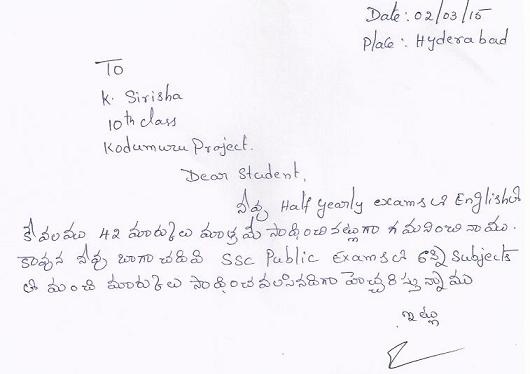 Date: 02/03/15
Place: Hyderabad
To
K. Sirisha
10th class
Kodumuru Project.
Dear Student,
నీవు Half yearly examsలో Englishలో
కేవలము 42 మార్కులు మాత్రమే సాధించినట్లుగా గమనించినాము.
కావున నీవు బాగా చదివి SSC Public Examsలో అన్ని Subjects
లో మంచి మార్కులు సాధించవలసినదిగా హెచ్చరిస్తున్నాము
ఇట్లు